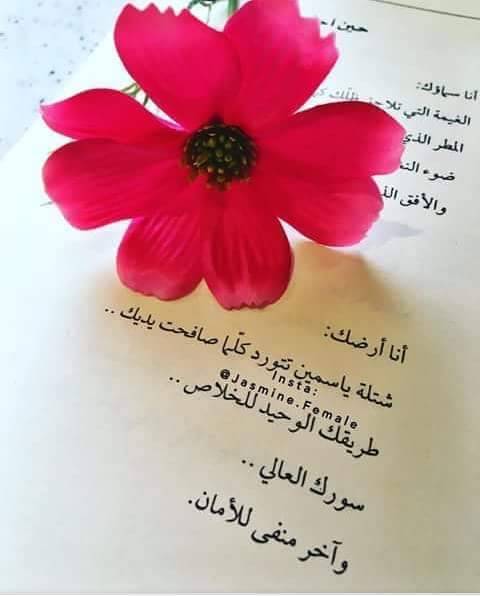 حين أ
أنا سماؤك:
الغيمة التي تلاحق ظلّك
المطر الذي
ضوء
والأفق
أنا أرضك:
شتلة ياسمين تتورد كلّما صافحت يديك ..
Insta:
@Jasmine.Female
طريقك الوحيد للخلاص ..
سورك العالي ..
وآخر منفى للأمان.